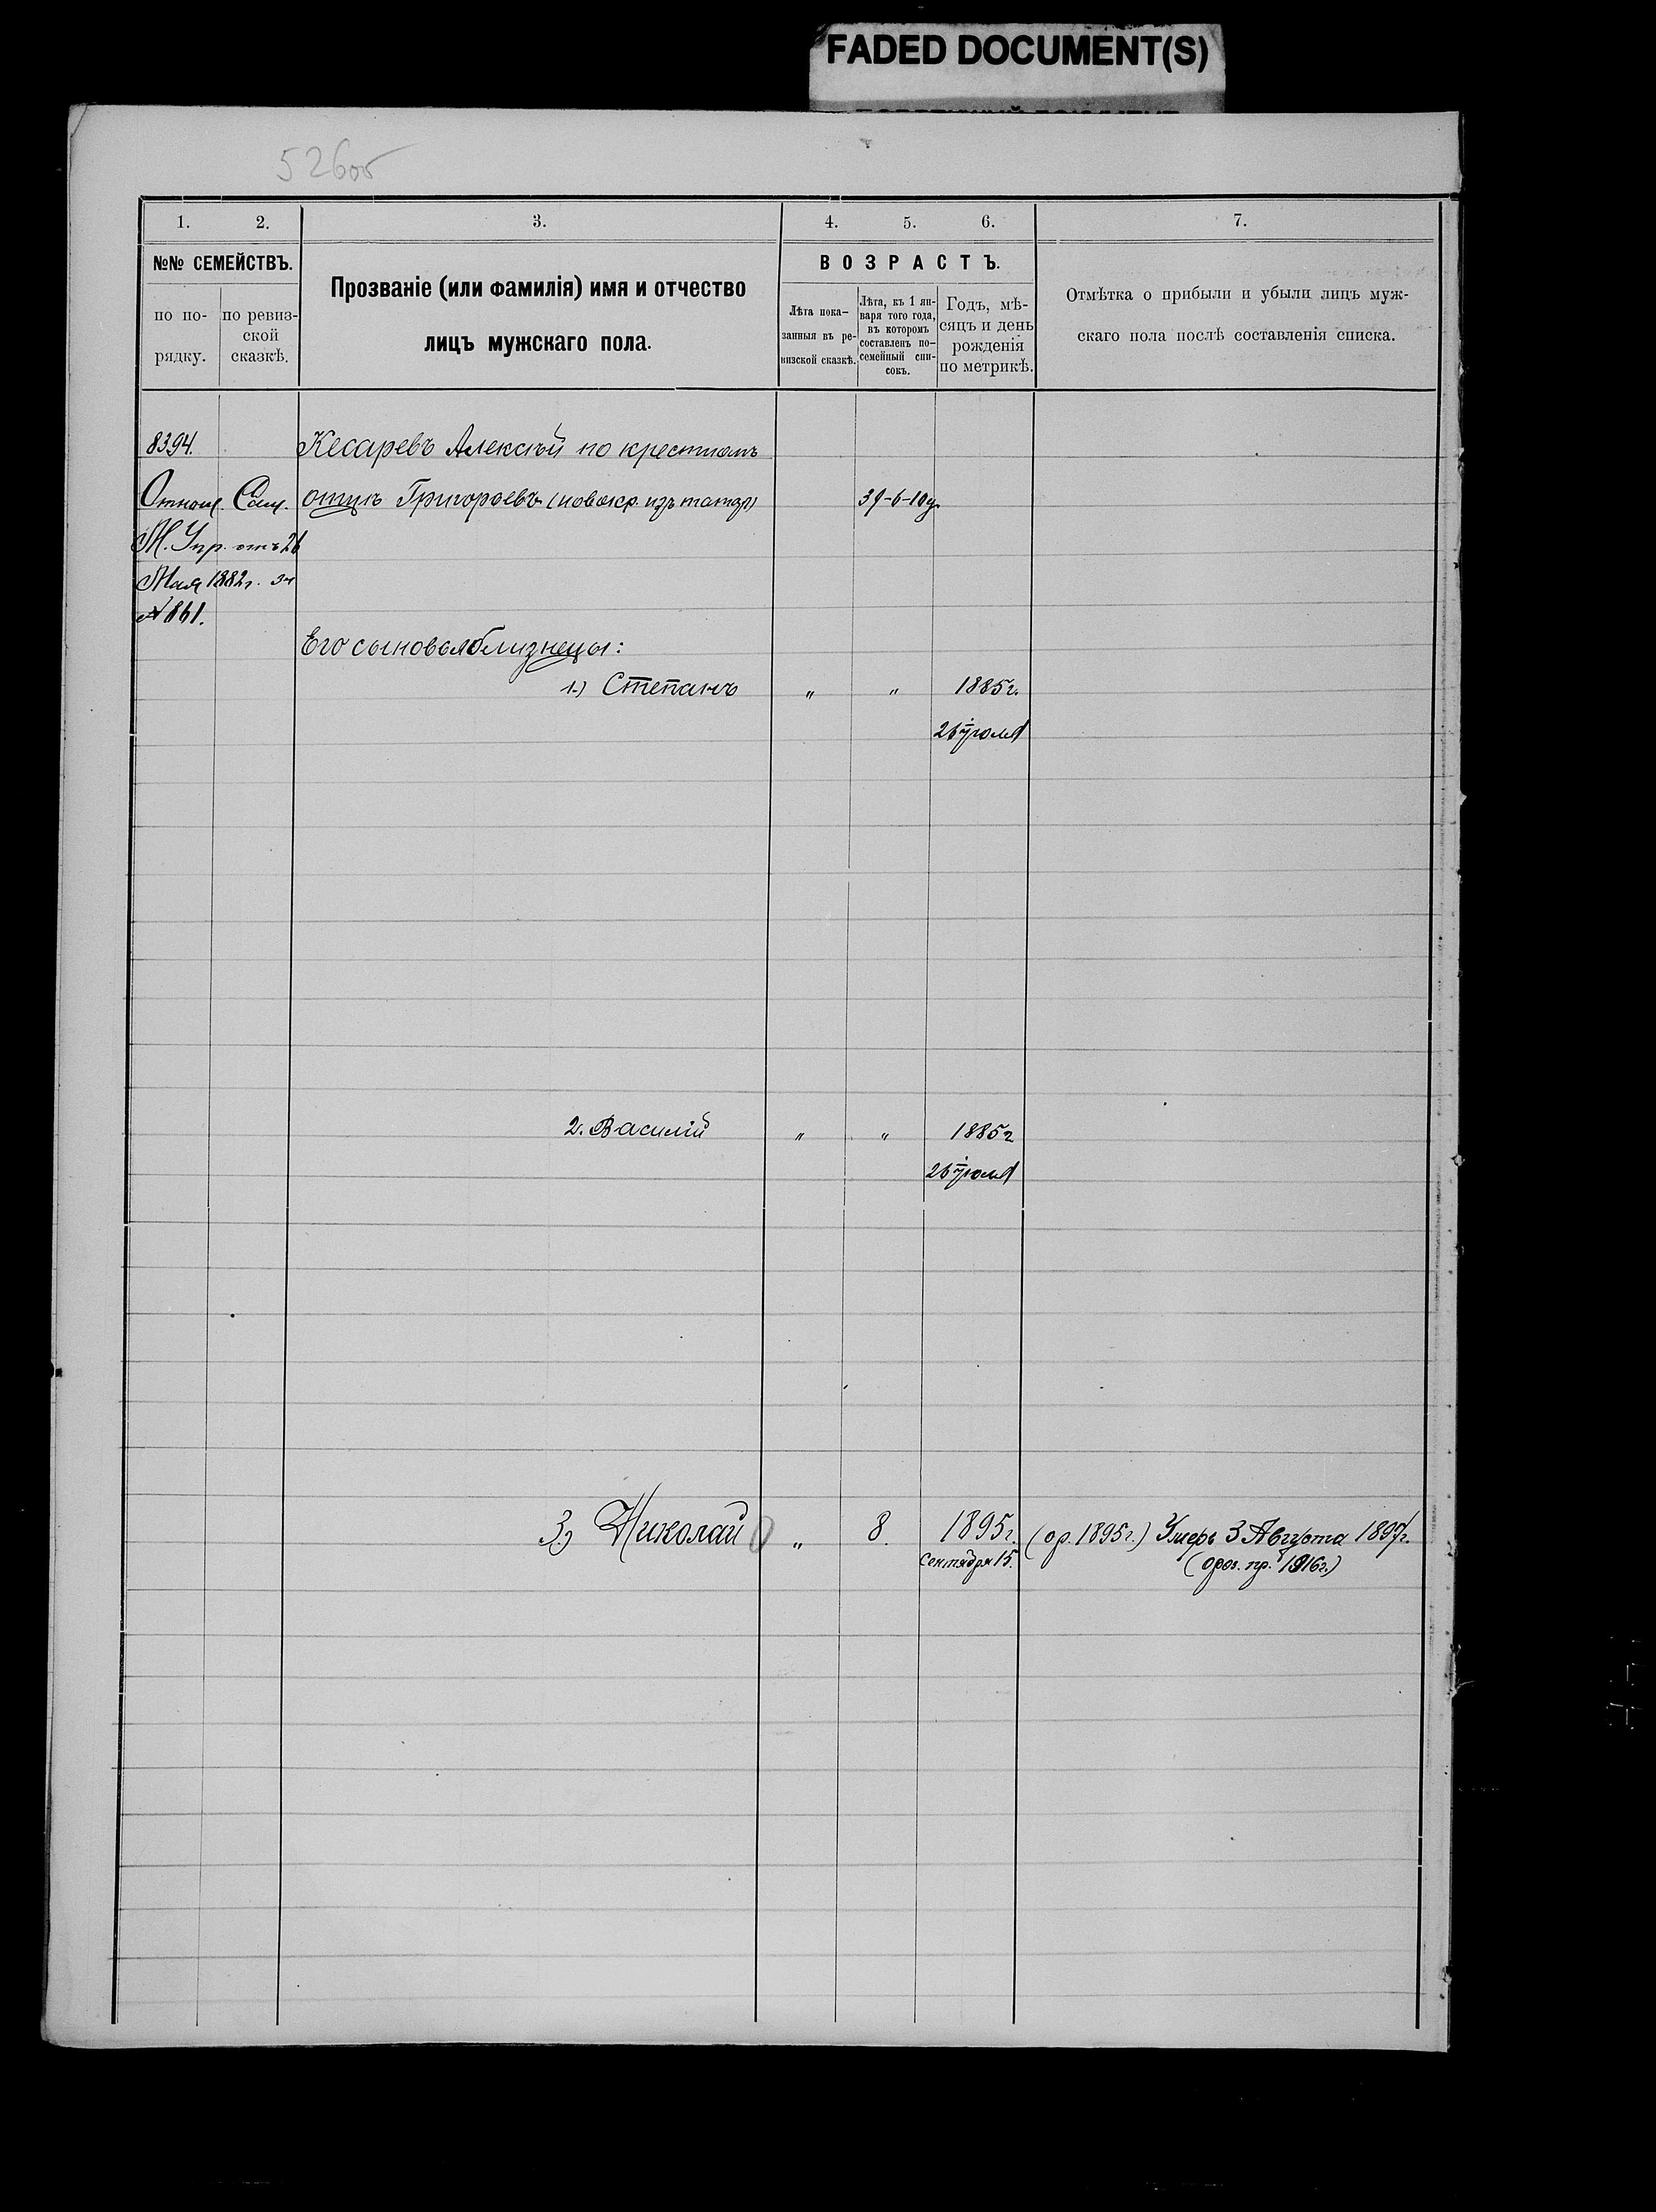 FADED DOCUMENT(S)
526об
1. 2. 3. 4. 5. 6. 7.
№№ СЕМЕЙСТВЪ.
по по-
рядку.
по ревиз-
ской
сказкѣ.
Прозваніе (или фамилія) имя и отчество
лицъ мужскаго пола.
ВОЗРАСТЪ.
Лѣта пока-
занныя въ ре-
визской сказкѣ.
Лѣта, къ 1 ян-
варя того года,
въ которомъ
составленъ по-
семейный спи-
сокъ.
Годъ, мѣ-
сяцъ и день
рожденія
по метрикѣ.
Отмѣтка о прибыли и убыли лицъ муж-
скаго пола послѣ составленія списка.
8394. Кесаревъ Алексѣй по крестномъ
Отнош. Сам. отцѣ Григорьевъ (новокр. изъ татаръ)
М. Упр. отъ 26
Мая 1882г. за
№ 861.
Его сыновья близнецы:
1.) Степанъ " " 1885г.
26 іюля
2. Василій " " 1885г
26 іюля
3.) Николай " 8. 1895г. (ор. 1895г.) Умеръ 3 Августа 1897г.
Сентября 15. 1916г.)